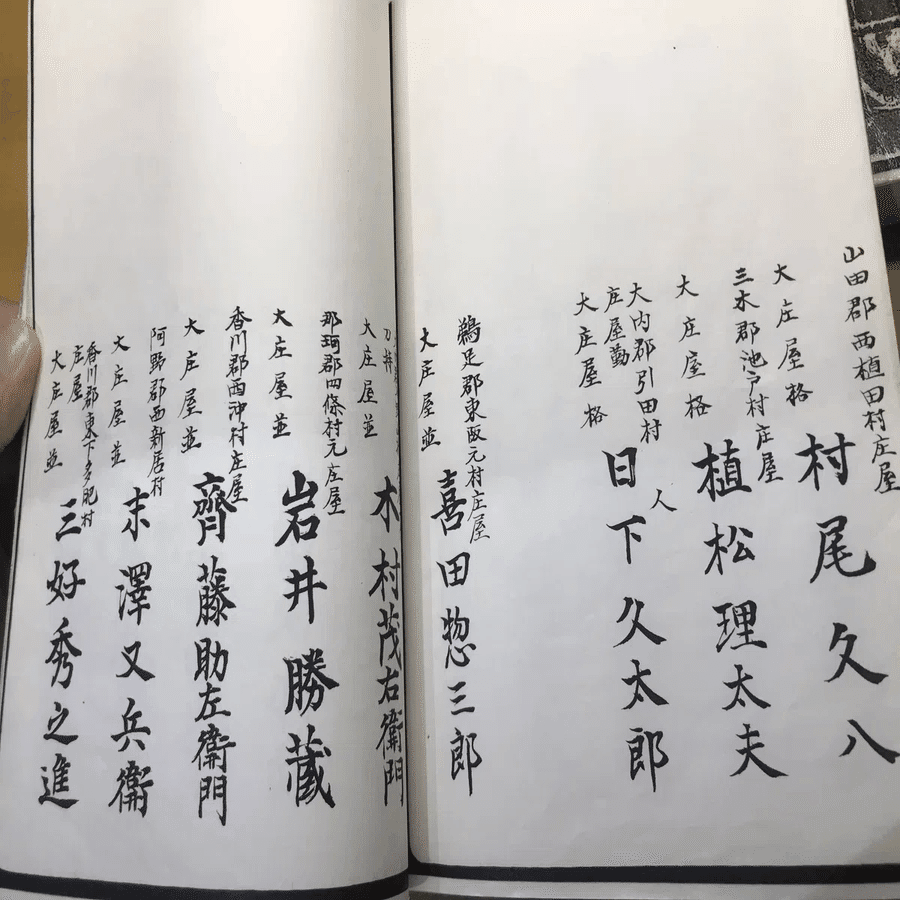 山田郡西植田村庄屋
大庄屋格
村尾久八
三木郡池戸村庄屋
大庄屋格
植松理太夫
大内郡引田村
庄屋勤人
大庄屋格
日下久太郎
鵜足郡東坂元村庄屋
大庄屋並
喜田惣三郎
刀持
大庄屋並
木村茂右衞門
那珂郡四條村元庄屋
大庄屋並
岩井勝蔵
香川郡西沖村庄屋
大庄屋並
齊藤助左衞門
阿野郡西新居村
大庄屋並
末澤又兵衞
香川郡東下多肥村
庄屋
大庄屋並
三好秀之進